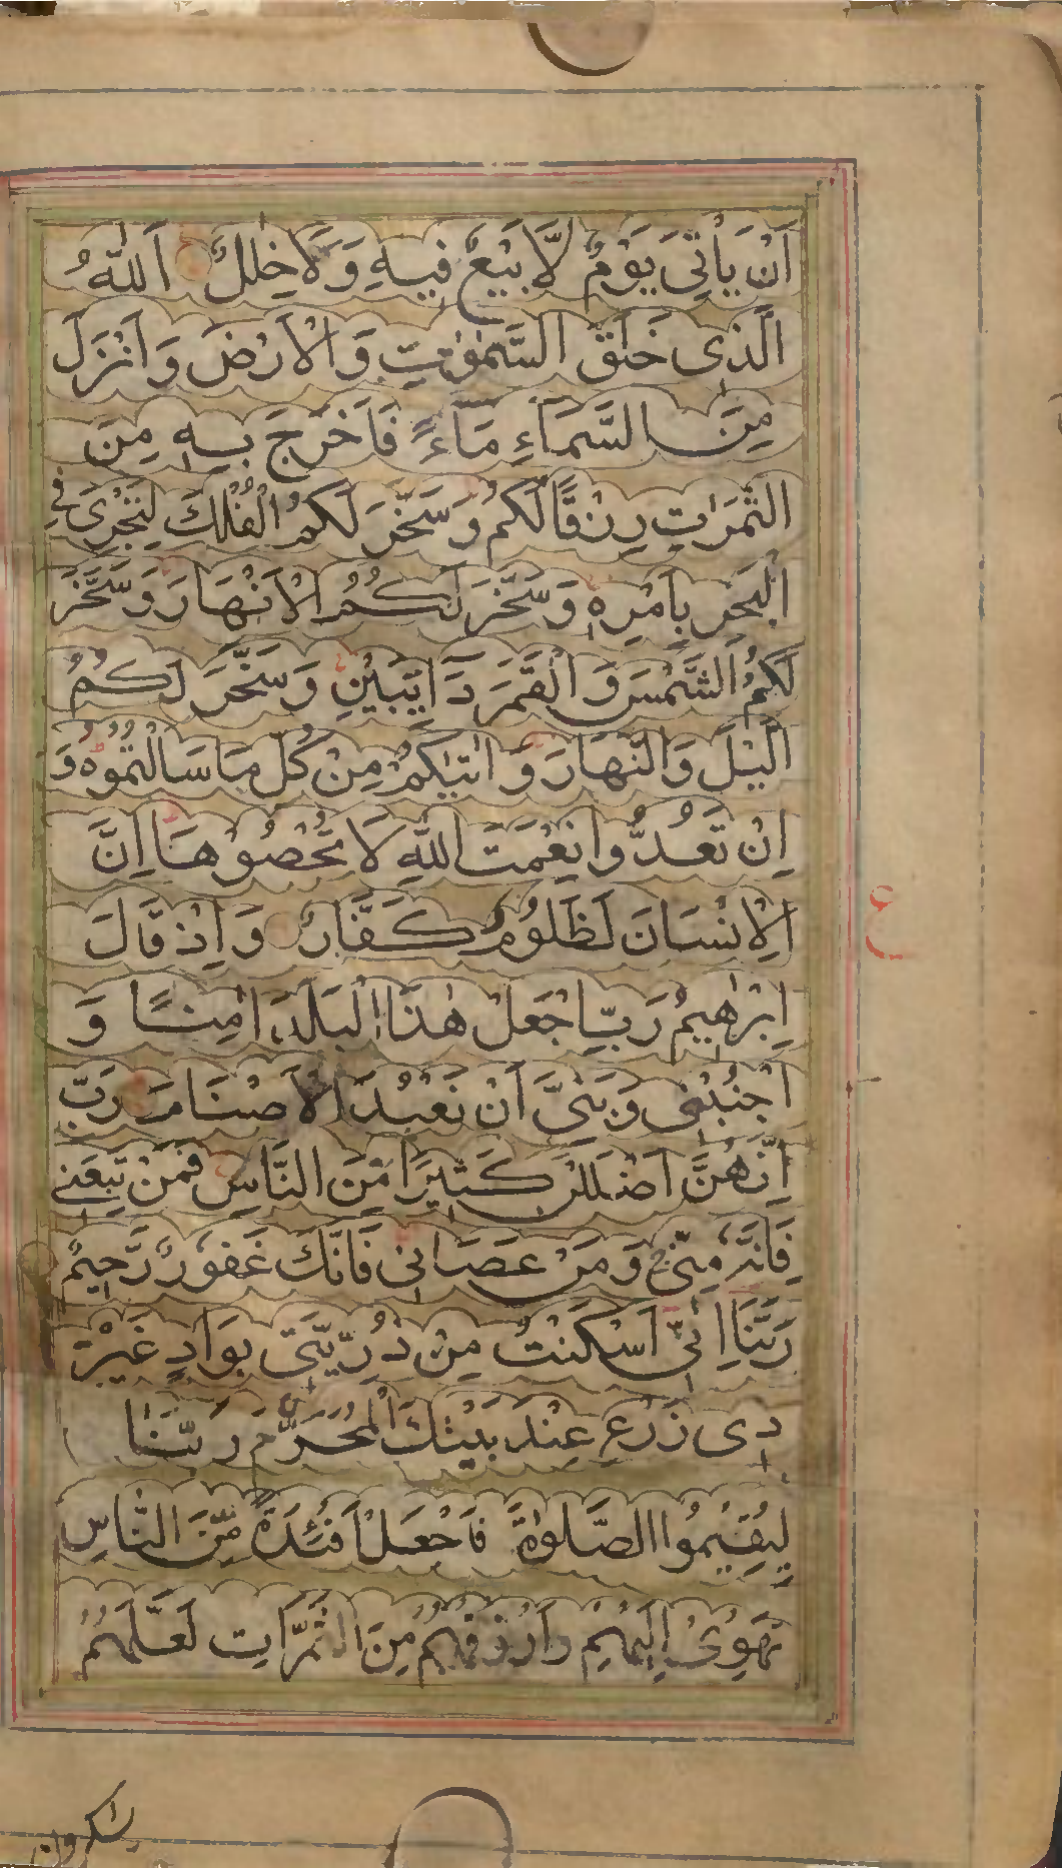 اَنْ يَأْتِىَ يَوْمٌ لَّا بَيْعٌ فِيهِ وَلَا خِلٰلٌ اَللّٰهُ
الَّذِى خَلَقَ السَّمٰوٰتِ وَالْاَرْضَ وَاَنْزَلَ
مِنَ السَّمَآءِ مَآءً فَاَخْرَجَ بِهٖ مِنَ
الثَّمَرٰتِ رِزْقًا لَّكُمْ وَسَخَّرَ لَكُمُ الْفُلْكَ لِتَجْرِىَ فِى
الْبَحْرِ بِاَمْرِهٖ وَسَخَّرَ لَكُمُ الْاَنْهَارَ وَسَخَّرَ
لَكُمُ الشَّمْسَ وَالْقَمَرَ دَآئِبَيْنِ وَسَخَّرَ لَكُمُ
الَّيْلَ وَالنَّهَارَ وَاٰتٰىكُمْ مِنْ كُلِّ مَا سَاَلْتُمُوْهُ وَ
اِنْ تَعُدُّوا نِعْمَتَ اللّٰهِ لَا تُحْصُوْهَا اِنَّ
الْاِنْسَانَ لَظَلُوْمٌ كَفَّارٌ وَاِذْ قَالَ
اِبْرٰهِيْمُ رَبِّ اجْعَلْ هٰذَا الْبَلَدَ اٰمِنًا وَ
اجْنُبْنِى وَبَنِىَّ اَنْ نَعْبُدَ الْاَصْنَامَ رَبِّ
اِنَّهُنَّ اَضْلَلْنَ كَثِيْرًا مِّنَ النَّاسِ فَمَنْ تَبِعَنِى
فَاِنَّهٗ مِنِّى وَمَنْ عَصَانِى فَاِنَّكَ غَفُوْرٌ رَّحِيْمٌ
رَبَّنَا اِنِّى اَسْكَنْتُ مِنْ ذُرِّيَّتِى بِوَادٍ غَيْرِ
ذِى زَرْعٍ عِنْدَ بَيْتِكَ الْمُحَرَّمِ رَبَّنَا
لِيُقِيْمُوا الصَّلٰوةَ فَاجْعَلْ اَفْئِدَةً مِّنَ النَّاسِ
تَهْوِىْ اِلَيْهِمْ وَارْزُقْهُمْ مِنَ الثَّمَرَاتِ لَعَلَّهُمْ
يشكرون
ع